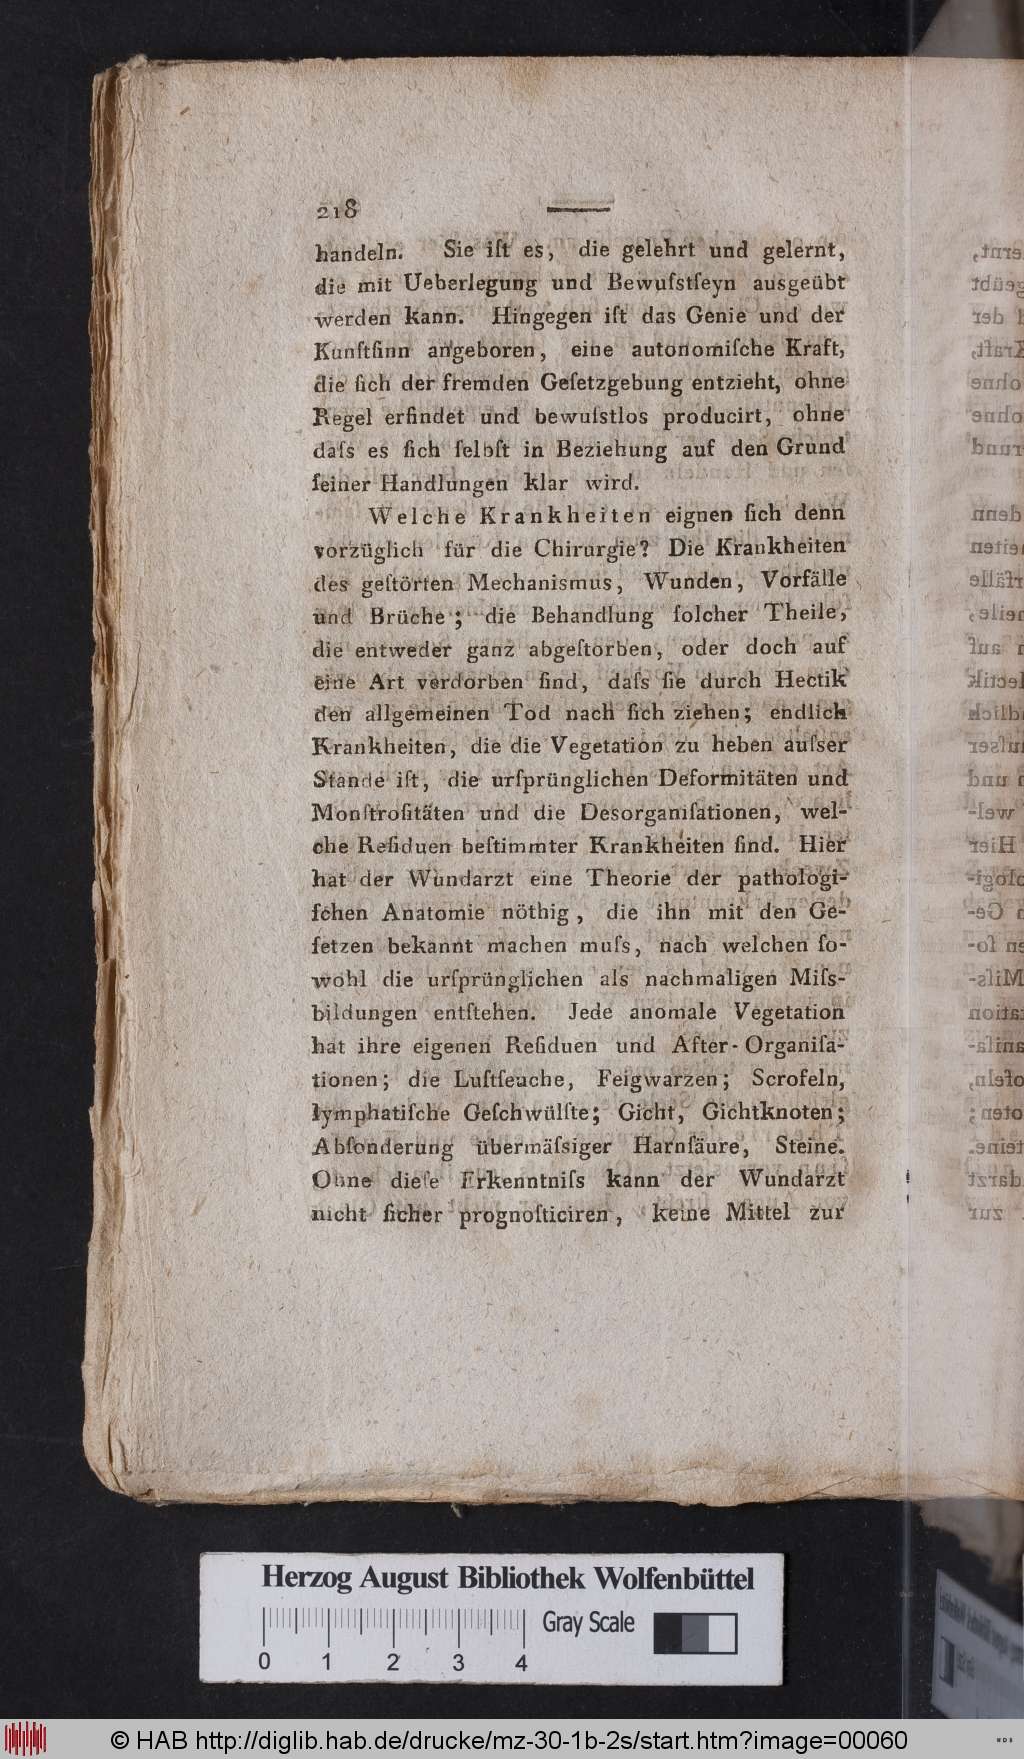 218
handeln. Sie iſt es, die gelehrt und gelernt,
die mit Ueberlegung und Bewuſstſeyn ausgeübt
werden kann. Hingegen iſt das Genie und der
Kunſtſinn angeboren, eine autonomiſche Kraft,
die ſich der fremden Geſetzgebung entzieht, ohne
Regel erfindet und bewuſstlos producirt, ohne
daſs es ſich ſelbſt in Beziehung auf den Grund
ſeiner Handlungen klar wird.
Welche Krankheiten eignen ſich denn
vorzüglich für die Chirurgie? Die Krankheiten
des geſtörten Mechanismus, Wunden, Vorfälle
und Brüche; die Behandlung ſolcher Theile,
die entweder ganz abgeſtorben, oder doch auf
eine Art verdorben ſind, daſs ſie durch Hectik
den allgemeinen Tod nach ſich ziehen; endlich
Krankheiten, die die Vegetation zu heben auſser
Stande iſt, die urſprünglichen Deformitäten und
Monſtroſitäten und die Desorganiſationen, wel-
che Reſiduen beſtimmter Krankheiten ſind. Hier
hat der Wundarzt eine Theorie der pathologi-
ſchen Anatomie nöthig, die ihn mit den Ge-
ſetzen bekannt machen muſs, nach welchen ſo-
wohl die urſprünglichen als nachmaligen Miſs-
bildungen entſtehen. Jede anomale Vegetation
hat ihre eigenen Reſiduen und After-Organiſa-
tionen; die Luſtſeuche, Feigwarzen; Scrofeln,
lymphatiſche Geſchwülſte; Gicht, Gichtknoten;
Abſonderung übermäſsiger Harnſäure, Steine.
Ohne dieſe Erkenntniſs kann der Wundarzt
nicht ſicher prognoſticiren, keine Mittel zur
Herzog August Bibliothek Wolfenbüttel
Gray Scale
0 1 2 3 4
© HAB http://diglib.hab.de/drucke/mz-30-1b-2s/start.htm?image=00060